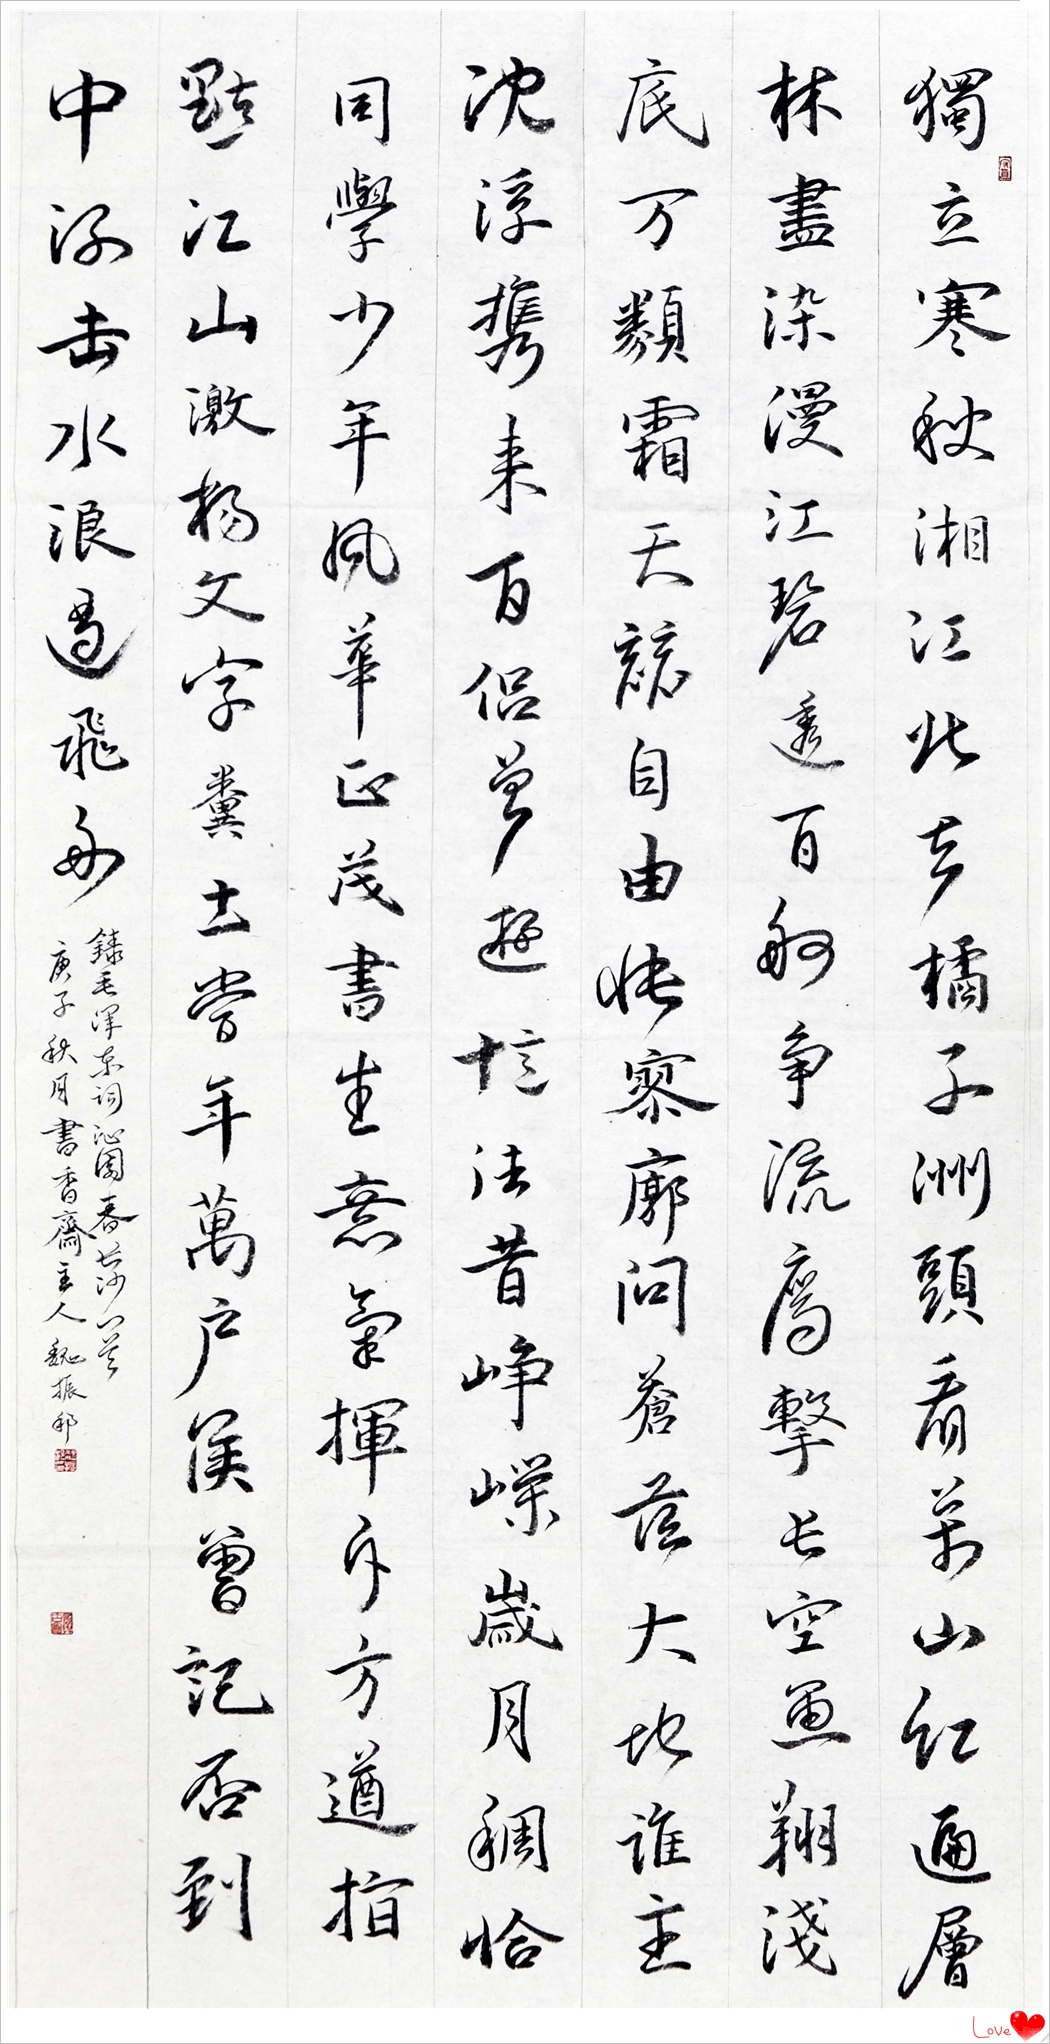 獨立寒秋湘江北去橘子洲頭看萬山紅遍層
林盡染漫江碧透百舸争流鷹擊長空魚翔淺
底万類霜天競自由悵寥廓問蒼茫大地誰主
沈浮携来百侣曾遊憶往昔崢嶸歲月稠恰
同學少年風華正茂書生意氣揮斥方遒指
點江山激揚文字糞土當年萬户侯曾記否到
中流击水浪遏飛舟
錄毛澤東词沁園春長沙一首
庚子秋月書香齋主人魏振邦
Love